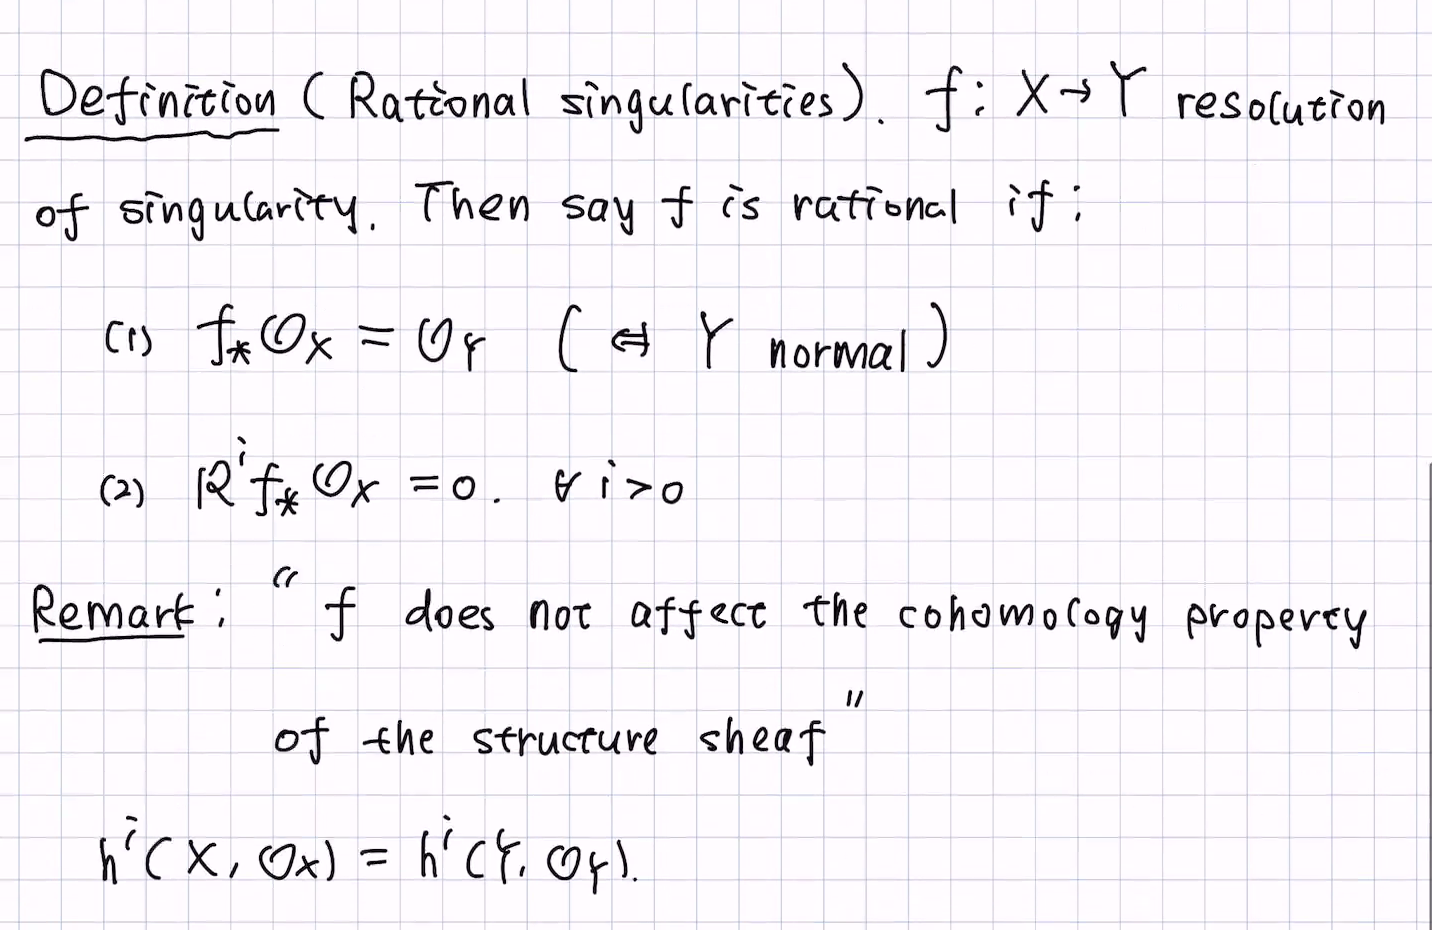 Definition (Rational singularities). f: X→Y resolution
of singularity. Then say f is rational if:
(1) f_* O_X = O_Y (⇔ Y normal)
(2) R^i f_* O_X = 0. ∀ i>0
Remark: "f does not affect the cohomology property
of the structure sheaf"
h^i(X, O_X) = h^i(Y, O_Y).